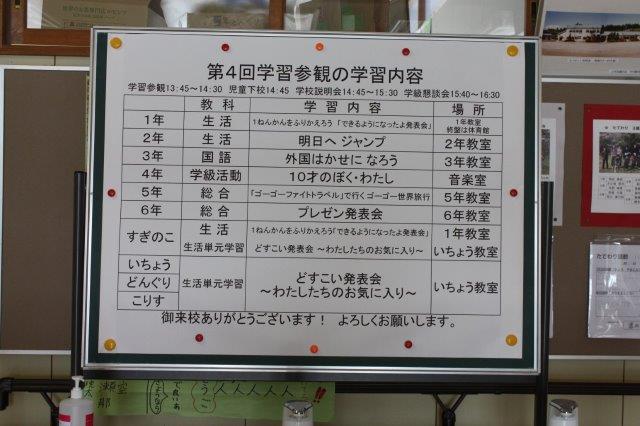 第4回学習参観の学習内容
学習参観13:45～14:30 児童下校14:45 学校説明会14:45～15:30 学級懇談会15:40～16:30
教科 学習内容 場所
1年 生活 1ねんかんをふりかえろう「できるようになったよ発表会」 1年教室 終盤は体育館
2年 生活 明日へ ジャンプ 2年教室
3年 国語 外国はかせに なろう 3年教室
4年 学級活動 10才のぼく・わたし 音楽室
5年 総合 「ゴーゴーファイトトラベル」で行くゴーゴー世界旅行 5年教室
6年 総合 プレゼン発表会 6年教室
すぎのこ 生活 1ねんかんをふりかえろう「できるようになったよ発表会」 1年教室
生活単元学習 どすこい発表会 ～わたしたちのお気に入り～ いちょう教室
いちょう
どんぐり 生活単元学習 どすこい発表会 いちょう教室
～わたしたちのお気に入り～
こりす
御来校ありがとうございます! よろしくお願いします。